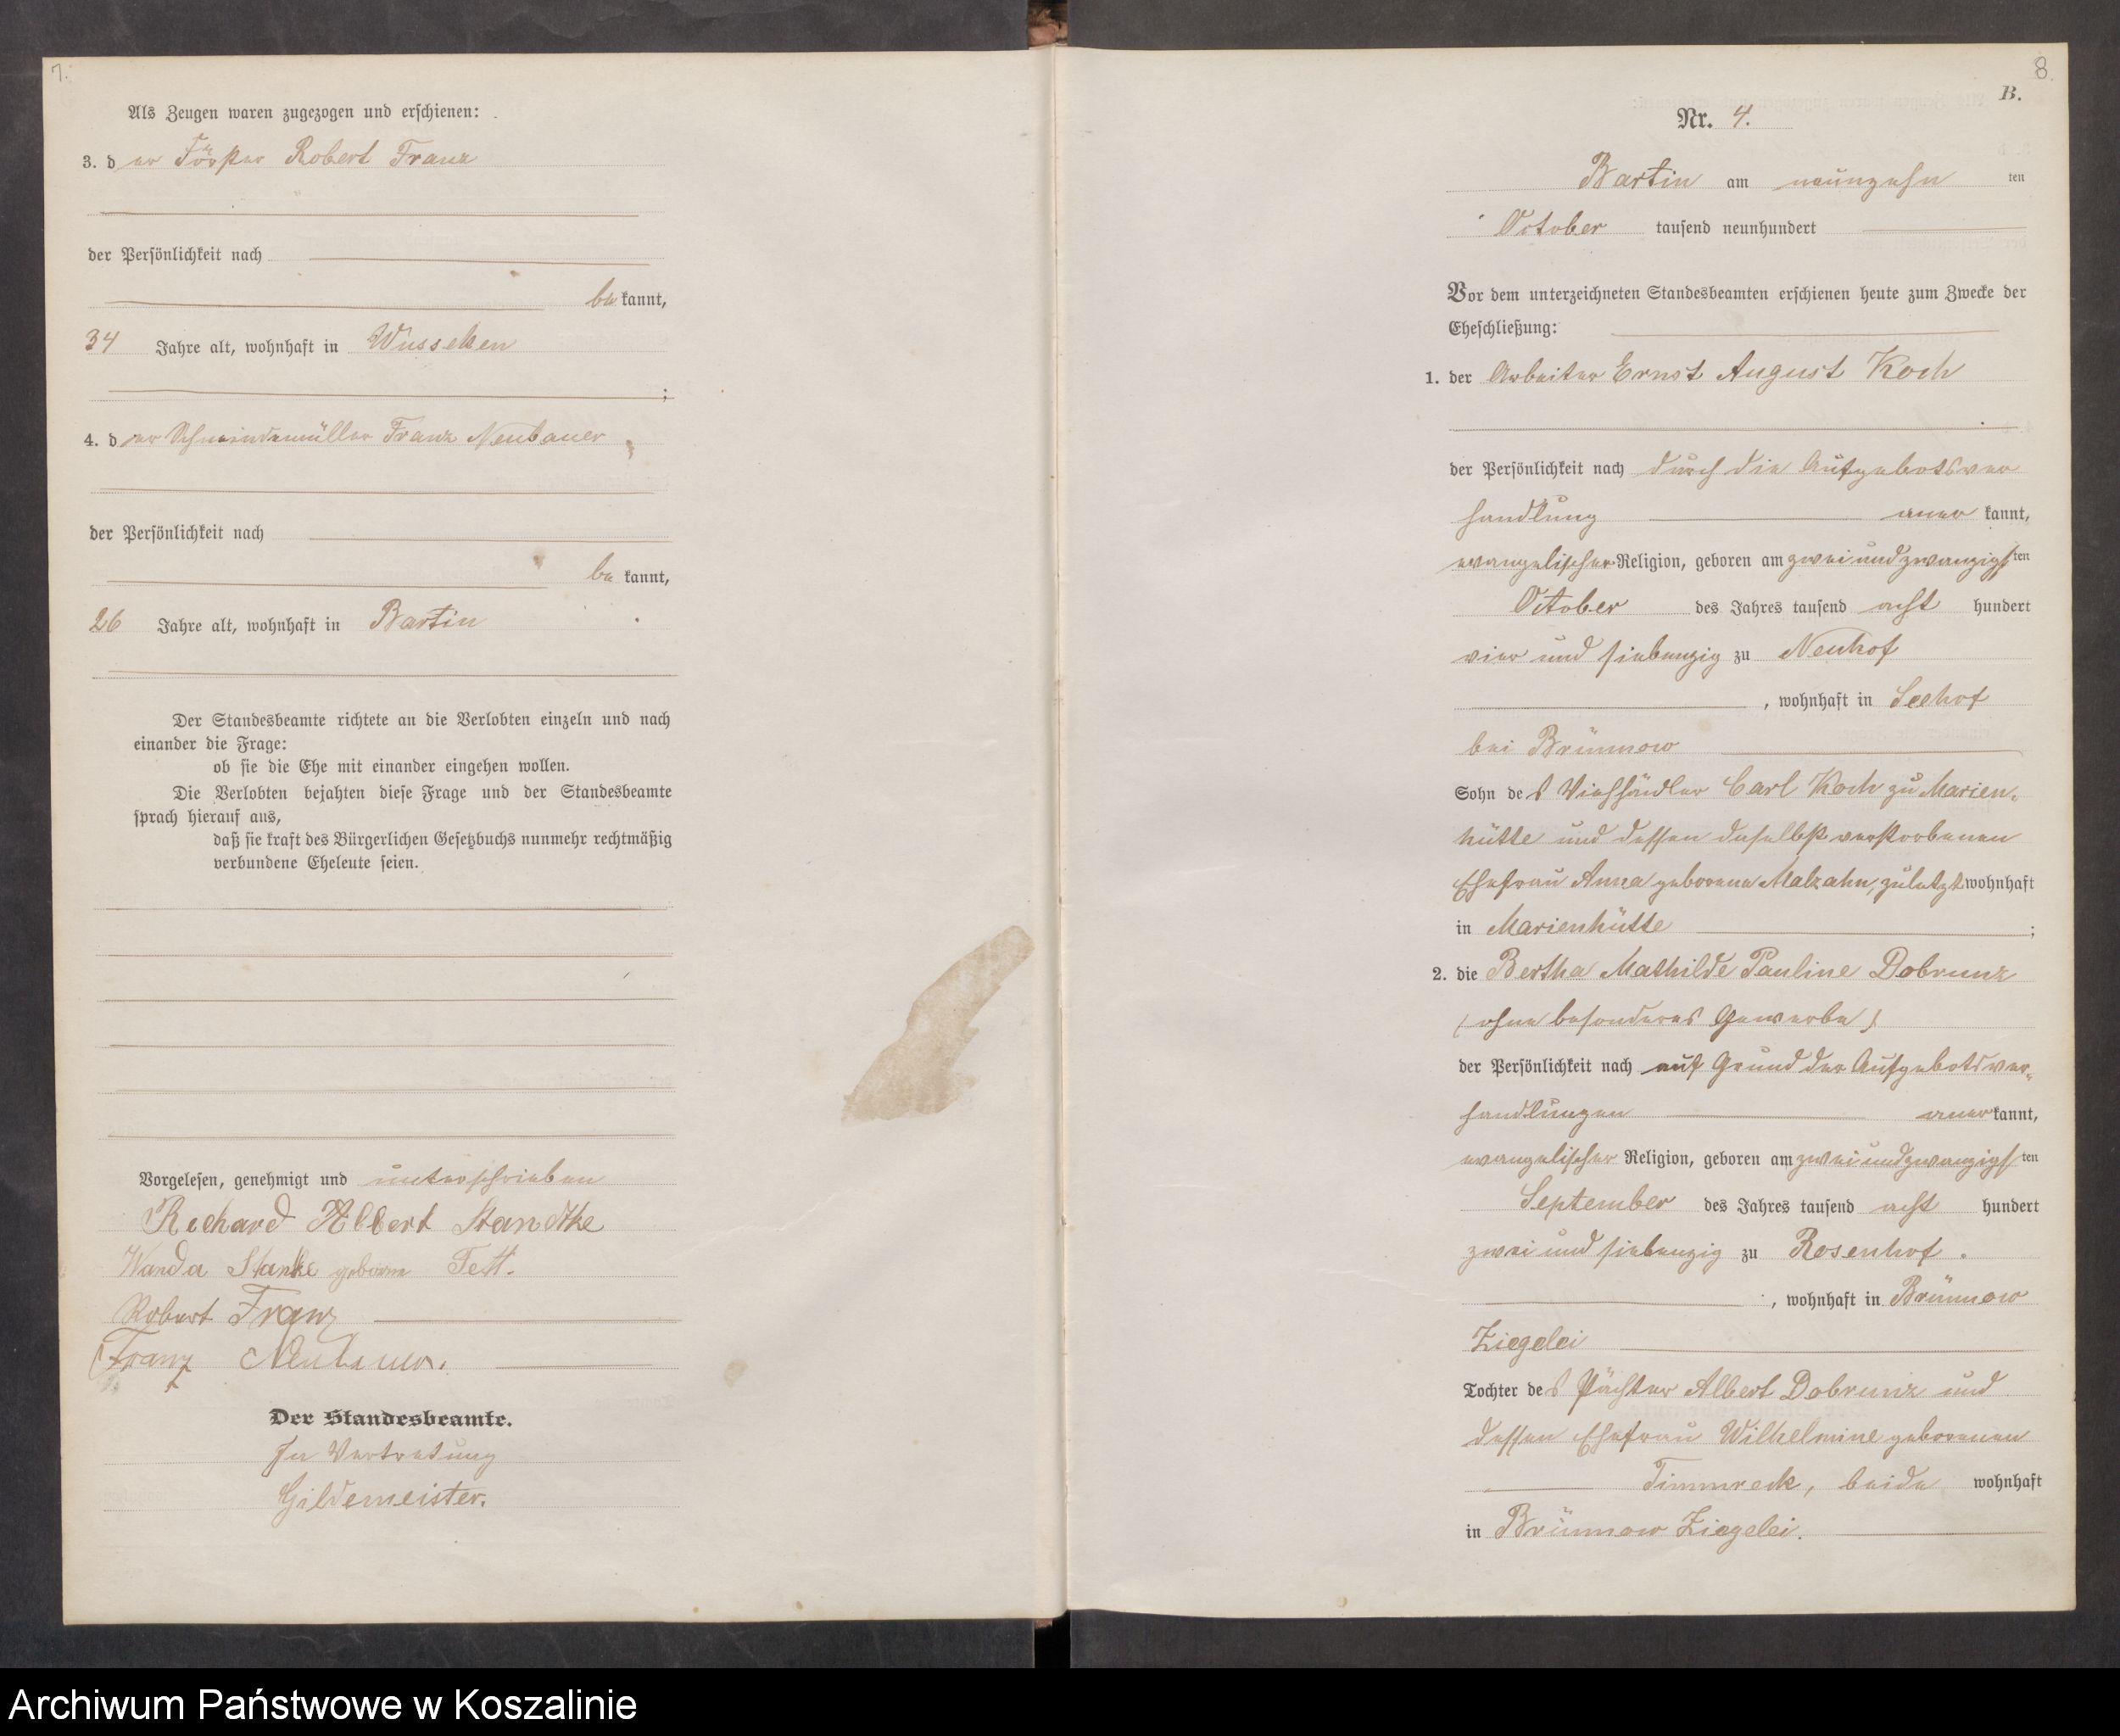 7.
Als Zeugen waren zugezogen und erschienen:
3. der Förster Robert Franz
der Persönlichkeit nach
bekannt,
34 Jahre alt, wohnhaft in Wusseken
;
4. der Schneidemüller Franz Neubauer
der Persönlichkeit nach
bekannt,
26 Jahre alt, wohnhaft in Bartin
Der Standesbeamte richtete an die Verlobten einzeln und nach
einander die Frage:
ob sie die Ehe mit einander eingehen wollen.
Die Verlobten bejahten diese Frage und der Standesbeamte
sprach hierauf aus,
daß sie kraft des Bürgerlichen Gesetzbuchs nunmehr rechtmäßig
verbundene Eheleute seien.
Vorgelesen, genehmigt und unterschrieben
Richard Albert
Wanda geborne Tett.
Robert Franz
Franz Neubauer.
Der Standesbeamte.
In Vertretung
Gildemeister.
8.
B.
Nr. 4.
Bartin am neunzehn ten
October tausend neunhundert
Vor dem unterzeichneten Standesbeamten erschienen heute zum Zwecke der
Eheschließung:
1. der Arbeiter Ernst August Koch
der Persönlichkeit nach durch die Aufgebotsver
handlung anerkannt,
evangelischer Religion, geboren am zweiundzwanzigsten
October des Jahres tausend acht hundert
vier und siebenzig zu Neuhof
, wohnhaft in Seehof
bei Brünnow
Sohn des Viehhändler Carl Koch zu Marien-
hütte und dessen daselbst verstorbenen
Ehefrau Anna geborene Malzahn, zuletzt wohnhaft
in Marienhütte ;
2. die Bertha Mathilde Pauline Dobrunz
(ohne besonderes Gewerbe)
der Persönlichkeit nach auf Grund der Aufgebotsver-
handlungen anerkannt,
evangelischer Religion, geboren am zweiundzwanzigsten
September des Jahres tausend acht hundert
zwei und siebenzig zu Rosenhof.
, wohnhaft in Brünnow
Ziegelei
Tochter des Pächter Albert Dobrunz und
dessen Ehefrau Wilhelmine geborenen
Timmreck, beide wohnhaft
in Brünnow Ziegelei.
Archiwum Państwowe w Koszalinie